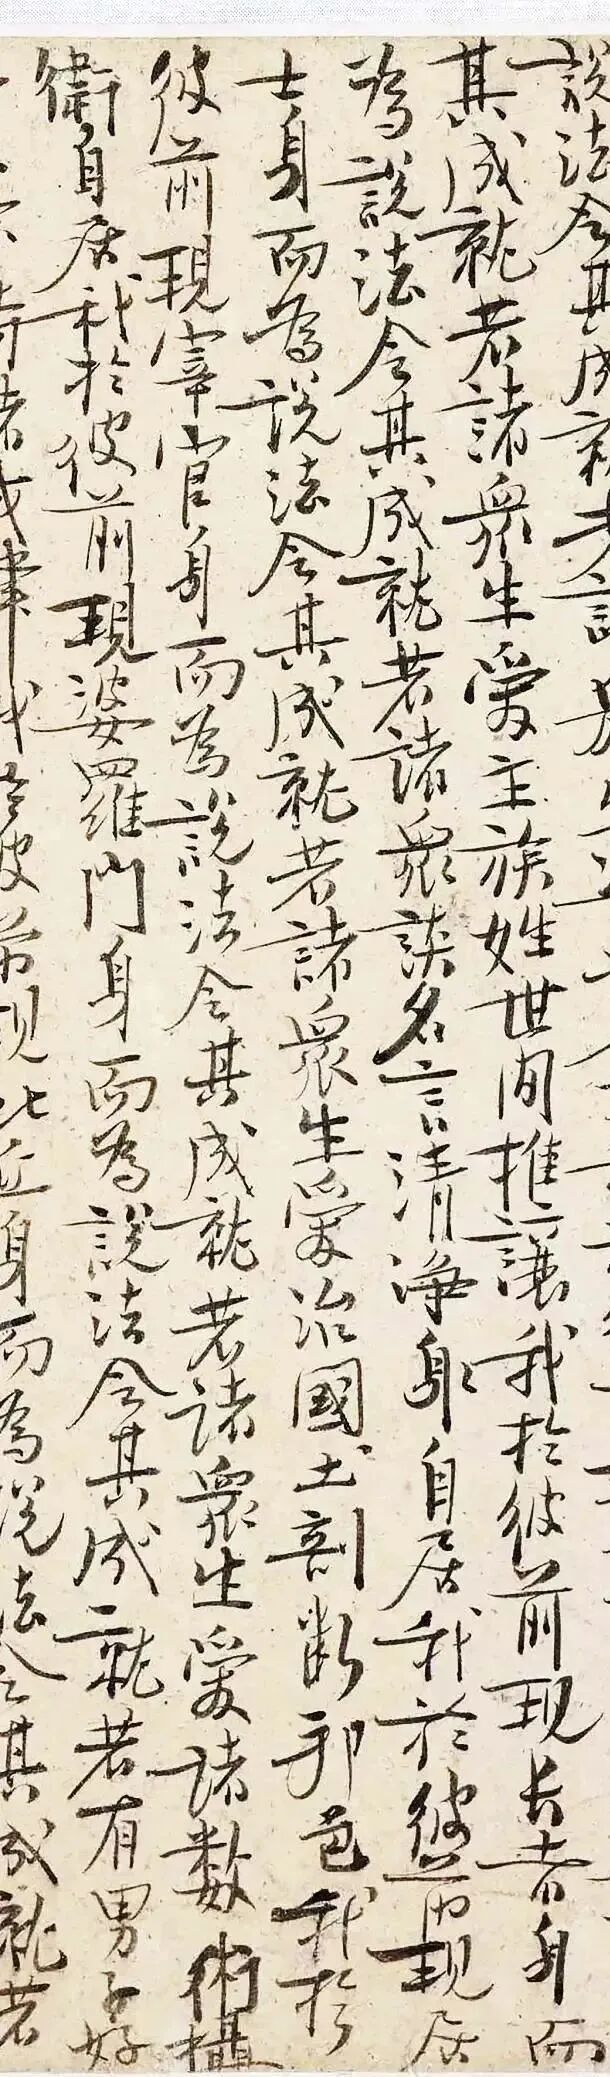 說法令其成就若諸眾生
其成就若諸眾生愛主族姓世間推讓我於彼前現長者身而
為說法令其成就若諸眾談名言清淨身自居我於彼前現居
士身而為說法令其成就若諸眾生愛治國土剖斷邦邑我於
彼前現宰官身而為說法令其成就若諸眾生愛諸數術攝
衛身居我於彼前現婆羅門身而為說法令其成就若有男子好
持諸戒律我於彼前現比丘身而為說法令其成就若